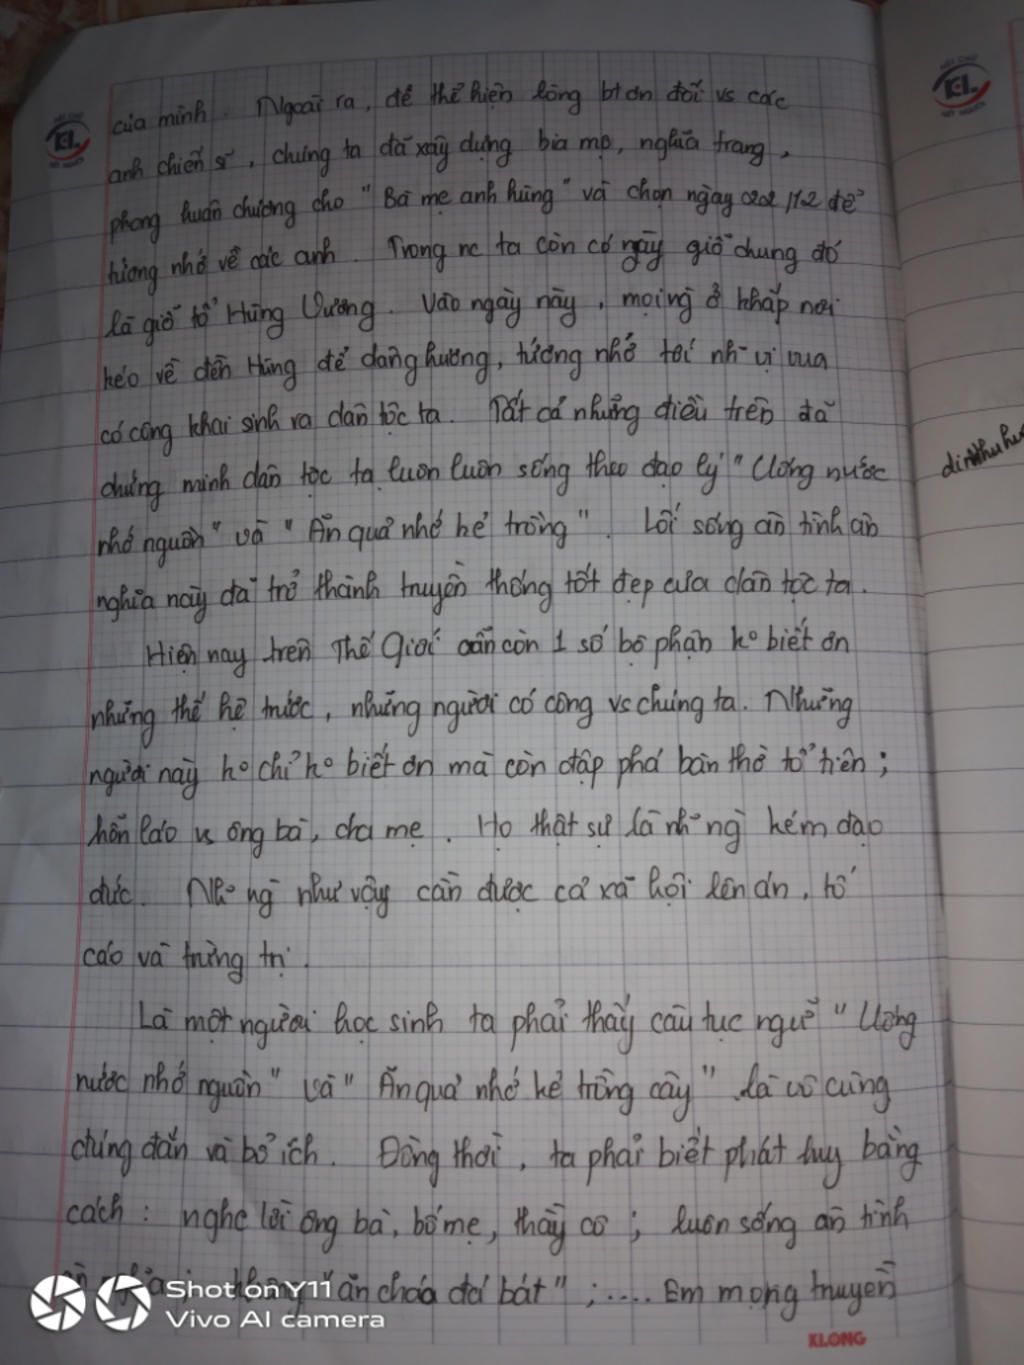 của mình. Ngoài ra, để thể hiện lòng bt ơn đối vs các
anh chiến sĩ, chúng ta đã xây dựng bia mộ, nghĩa trang,
phong huân chương cho "Bà mẹ anh hùng" và chọn ngày để
tưởng nhớ về các anh. Trong nc ta còn có ngày giỗ chung đó
là giỗ tổ Hùng Vương. Vào ngày này, mọi ng ở khắp nơi
kéo về đền Hùng để dâng hương, tưởng nhớ tới nh~ vị vua
có công khai sinh ra dân tộc ta. Tất cả những điều trên đã
chứng minh dân tộc ta luôn luôn sống theo đạo lý "Uống nước
nhớ nguồn" và "Ăn quả nhớ kẻ trồng". Lối sống ân tình ân
nghĩa này đã trở thành truyền thống tốt đẹp của dân tộc ta.
Hiện nay trên Thế Giới vẫn còn 1 số bộ phận k° biết ơn
những thế hệ trước, những người có công vs chúng ta. Những
người này k° chỉ k° biết ơn mà còn đập phá bàn thờ tổ tiên;
hỗn láo vs ông bà, cha mẹ. Họ thật sự là nh~ ng kém đạo
đức. Nh~ ng như vậy cần được cả xã hội lên án, tố
cáo và trừng trị.
Là một người học sinh ta phải thấy câu tục ngữ "Uống
nước nhớ nguồn" và "Ăn quả nhớ kẻ trồng cây" là vô cùng
đúng đắn và bổ ích. Đồng thời, ta phải biết phát huy bằng
cách: nghe lời ông bà, bố mẹ, thầy cô; luôn sống ân tình
ăn cháo đá bát"; .... Em mong truyền
Shot on Y11
Vivo AI camera
KLONG